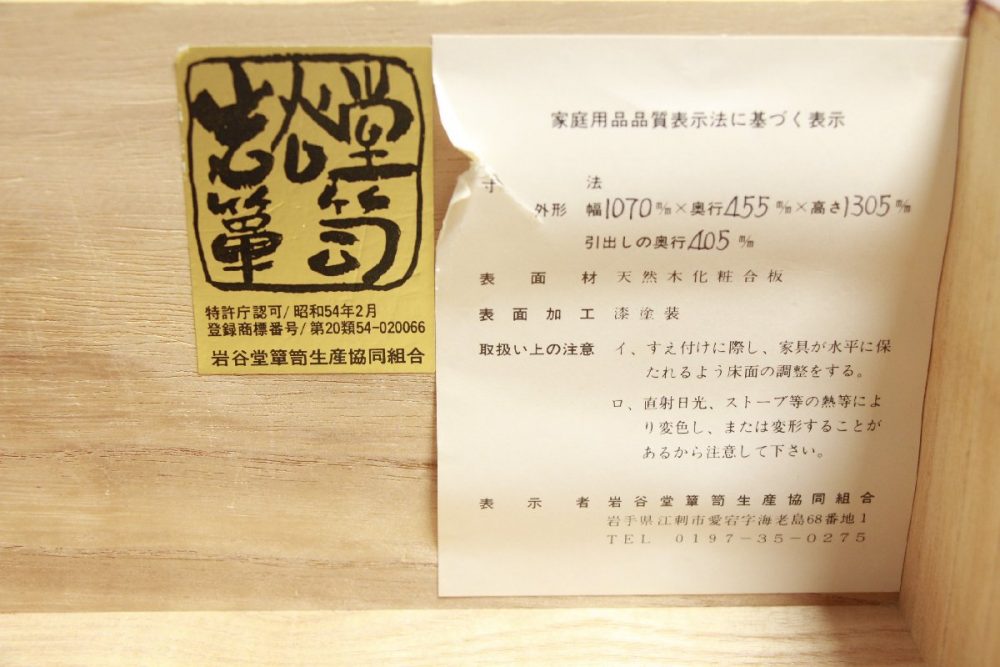 岩谷堂箪笥
特許庁認可/昭和54年2月
登録商標番号/第20類54-020066
岩谷堂簞笥生産協同組合
家庭用品品質表示法に基づく表示
寸法
外形 幅1070m/m×奥行455m/m×高さ1305m/m
引出しの奥行405m/m
表面材 天然木化粧合板
表面加工 漆塗装
取扱い上の注意 イ、すえ付けに際し、家具が水平に保
たれるよう床面の調整をする。
ロ、直射日光、ストーブ等の熱等によ
り変色し、または変形することが
あるから注意して下さい。
表示者 岩谷堂簞笥生産協同組合
岩手県江刺市愛宕字海老島68番地1
TEL 0197-35-0275